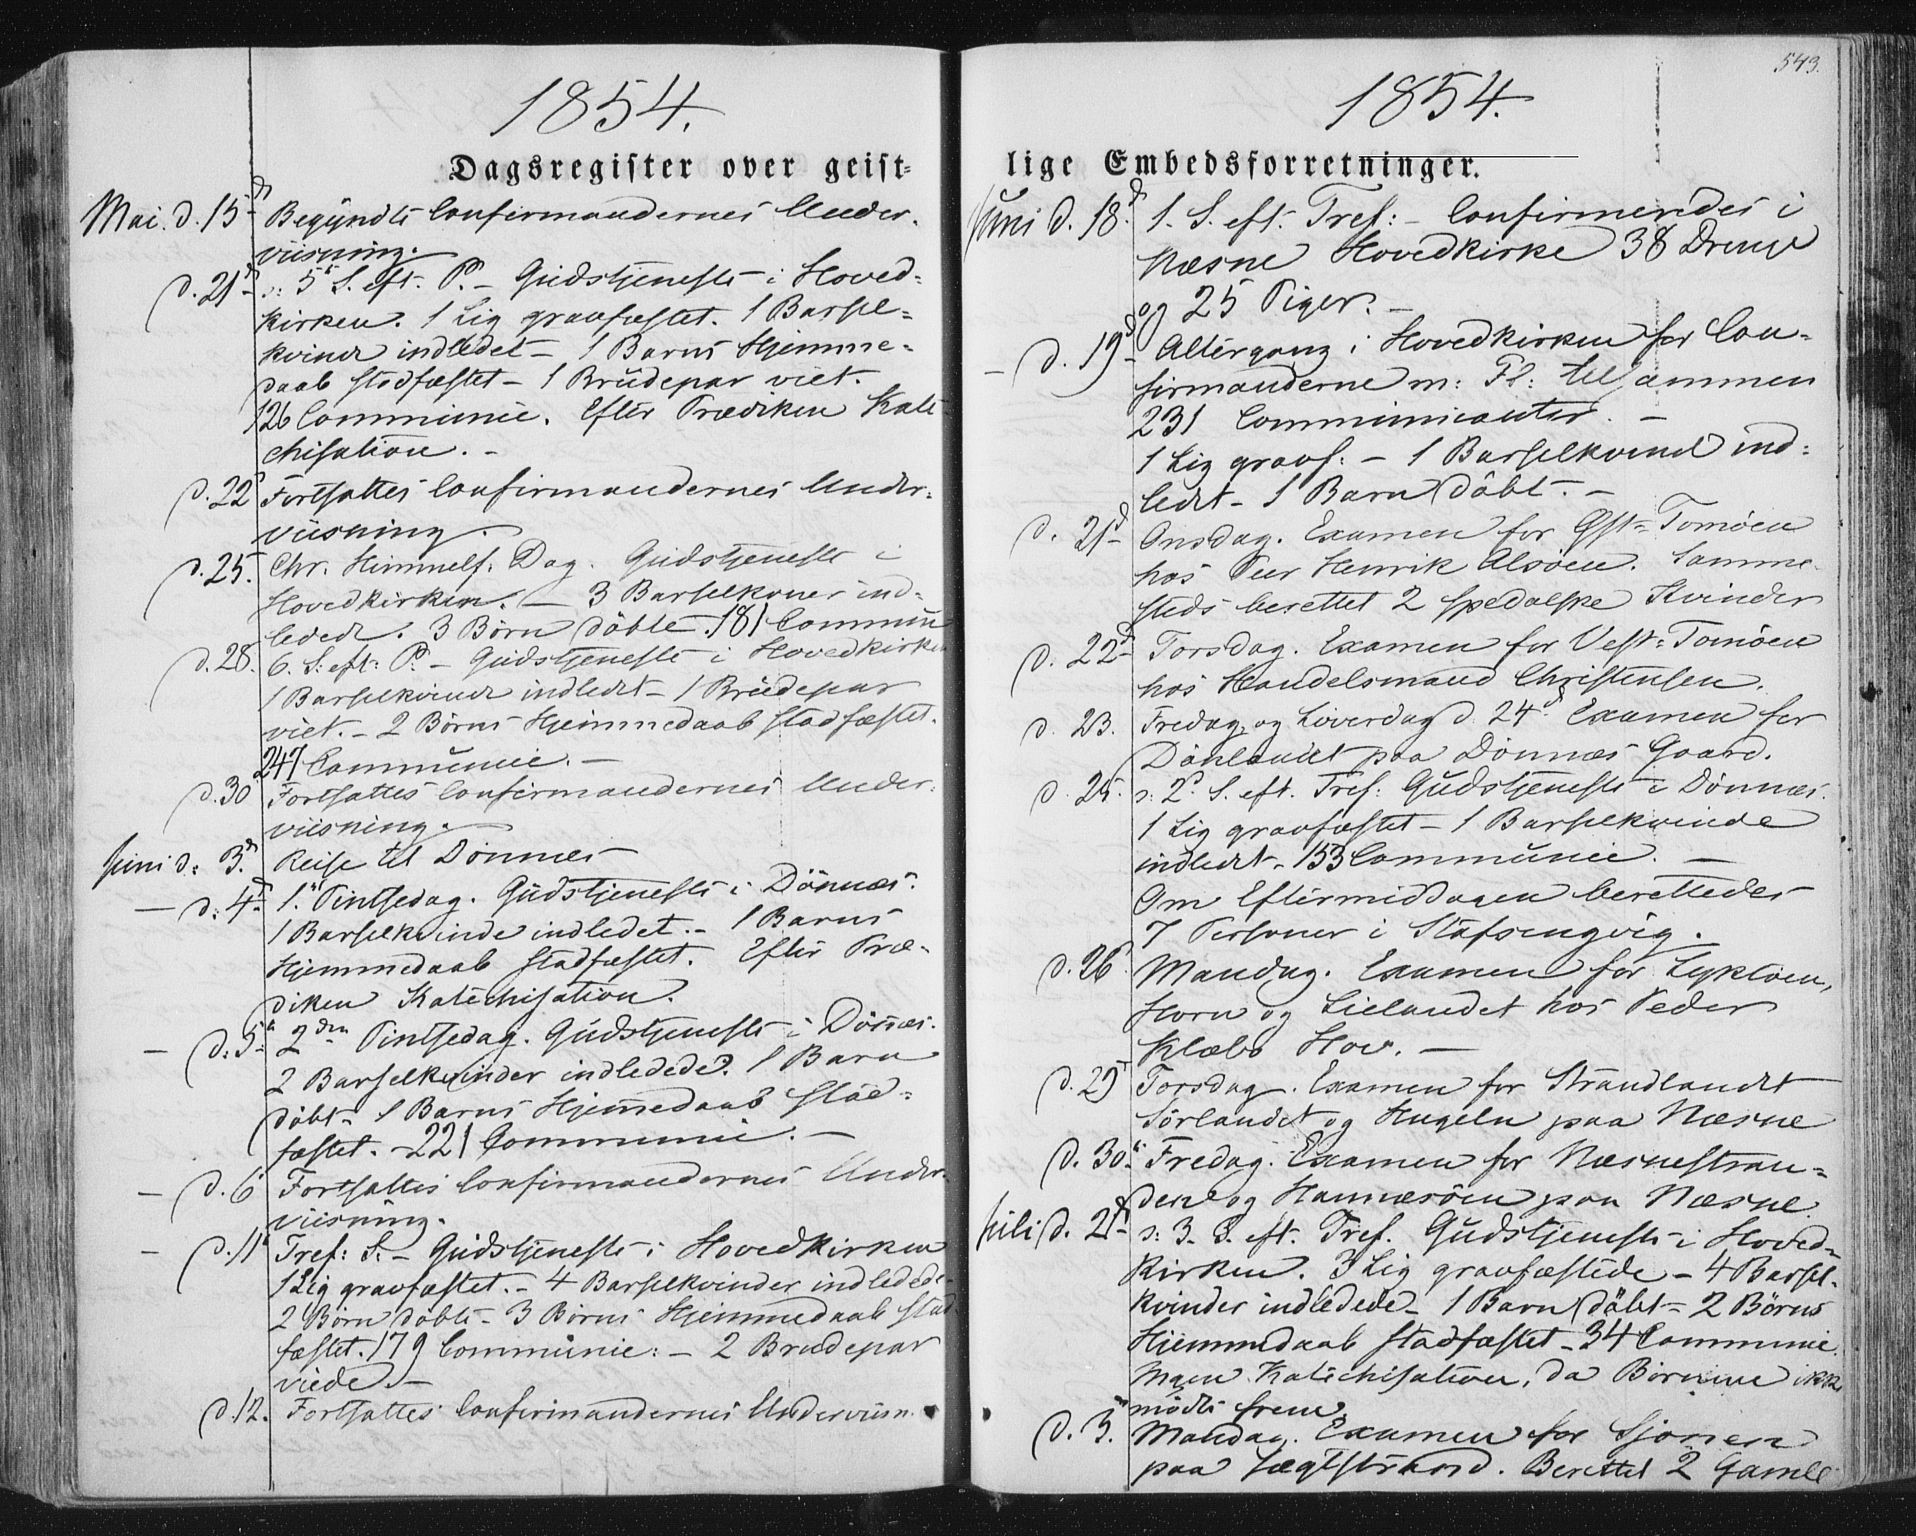 1854.
Dagsregister over geist-
Mai. d. 15d Begyndte Confirmandernes Under-
viisning.
d. 21d s: 5te S. eft. P. - Gudstjeneste i Hoved-
kirken. 1 Lig gravfæstet. 1 Barsel-
kvinde indledet - 1 Barns Hjemme-
daab stadfæstet - 1 Brudepar viet.
126 Communic. Efter Prædiken Kate-
chisation. -
d. 22d Fortsattes Confirmandernes Under-
viisning.
d. 25. Chr. Himmelf. Dag. Gudstjeneste i
Hovedkirken. - 3 Barselkoner ind-
ledede. 3 Börn döbte. 181 Commun
d. 28. 6. S: eft: P. - Gudstjeneste i Hovedkirken
1 Barselkvinde indledet - 1 Brudepar
viet. - 2 Börns Hjemmedaab stadfæstet.
247 Communic. -
d. 30 Fortsattes Confirmandernes Under-
viisning.
Juni d: 3d Reise til Dönnes
- d: 4d 1ste Pintsedag. Gudstjeneste i Dönnæs.
1 Barselkvinde indledet. - 1 Barns
Hjemmedaab stadfæstet. Efter Præ-
diken Katechisation.
- d: 5te 2den Pintsedag. Gudstjeneste i Dönnæs.
2 Barselkvinder indledede. 1 Barn
döbt - 1 Barns Hjemmedaab stad-
fæstet. - 221 Communic. -
- d. 6 Fortsattes Confirmandernes Under-
viisning.
- d. 11te Tref: S: - Gudstjeneste i Hovedkirken
1 Lig gravfæstet. - 4 Barselkvinder indledede
2 Börn döbte - 3 Börns Hjemmedaab stad
fæstet. 179 Communic: - 2 Brudepar
viede. -
d. 12. Fortsattes Confirmandernes Underviisn.
543.
1854.
lige Embedsforretninger.
Juni d. 18d 1. S. eft. Tref: - Confirmeredes i
Næsne Hovedkirke 38 Drenge
og 25 Piger. -
- d. 19d Altergang i Hovedkirken for Con-
firmanderne m: Fl: tilsammen
231 Communicanter. -
1 Lig gravf: - 1 Barselkvind ind-
ledet - 1 Barn döbt. -
d. 21d Onsdag. Examen for Øst-Tomöen
hos Peer Henrik Alsöen. Samme-
steds berettet 2 spedalske Kvinder
d. 22d Torsdag. Examen for Vest-Tomöen
hos Handelsmand Christensen.
d. 23. Fredag og Löverdag d. 24d Examen for
Dönlandet paa Dönnæs Gaard.
d. 25. s: 2d S. eft. Tref: Gudstjeneste i Dönnæs.
1 Lig gravfæstet - 1 Barselkvinde
indledet - 153 Communic. -
Om Eftermiddagen berettedes
7 Personer i Stafsengvig.
d. 26 Mandag. Examen for Lyktöen,
Horn og Lielandet hos Peder
Klæbo Hov. -
d. 29 Torsdag. Examen for Strandlandet
Sörlandet og Hugeln paa Næsne
d. 30te Fredag. Examen for Næsnestran-
den og Hannæsöen paa Næsne
Juli d. 2d s: 3. S. eft. Tref. Gudstjeneste i Hoved-
kirken. 3 Lig gravfæstede - 4 Barsel-
kvinder indledede - 1 Barn döbt - 2 Börns
Hjemmedaab stadfæstet - 34 Communic.
Ingen Katechisation, da Börnene ikke
mödte frem.
d. 3. Mandag. Examen for Sjonen
paa Hægtstrand. Berettet 2 Gamle